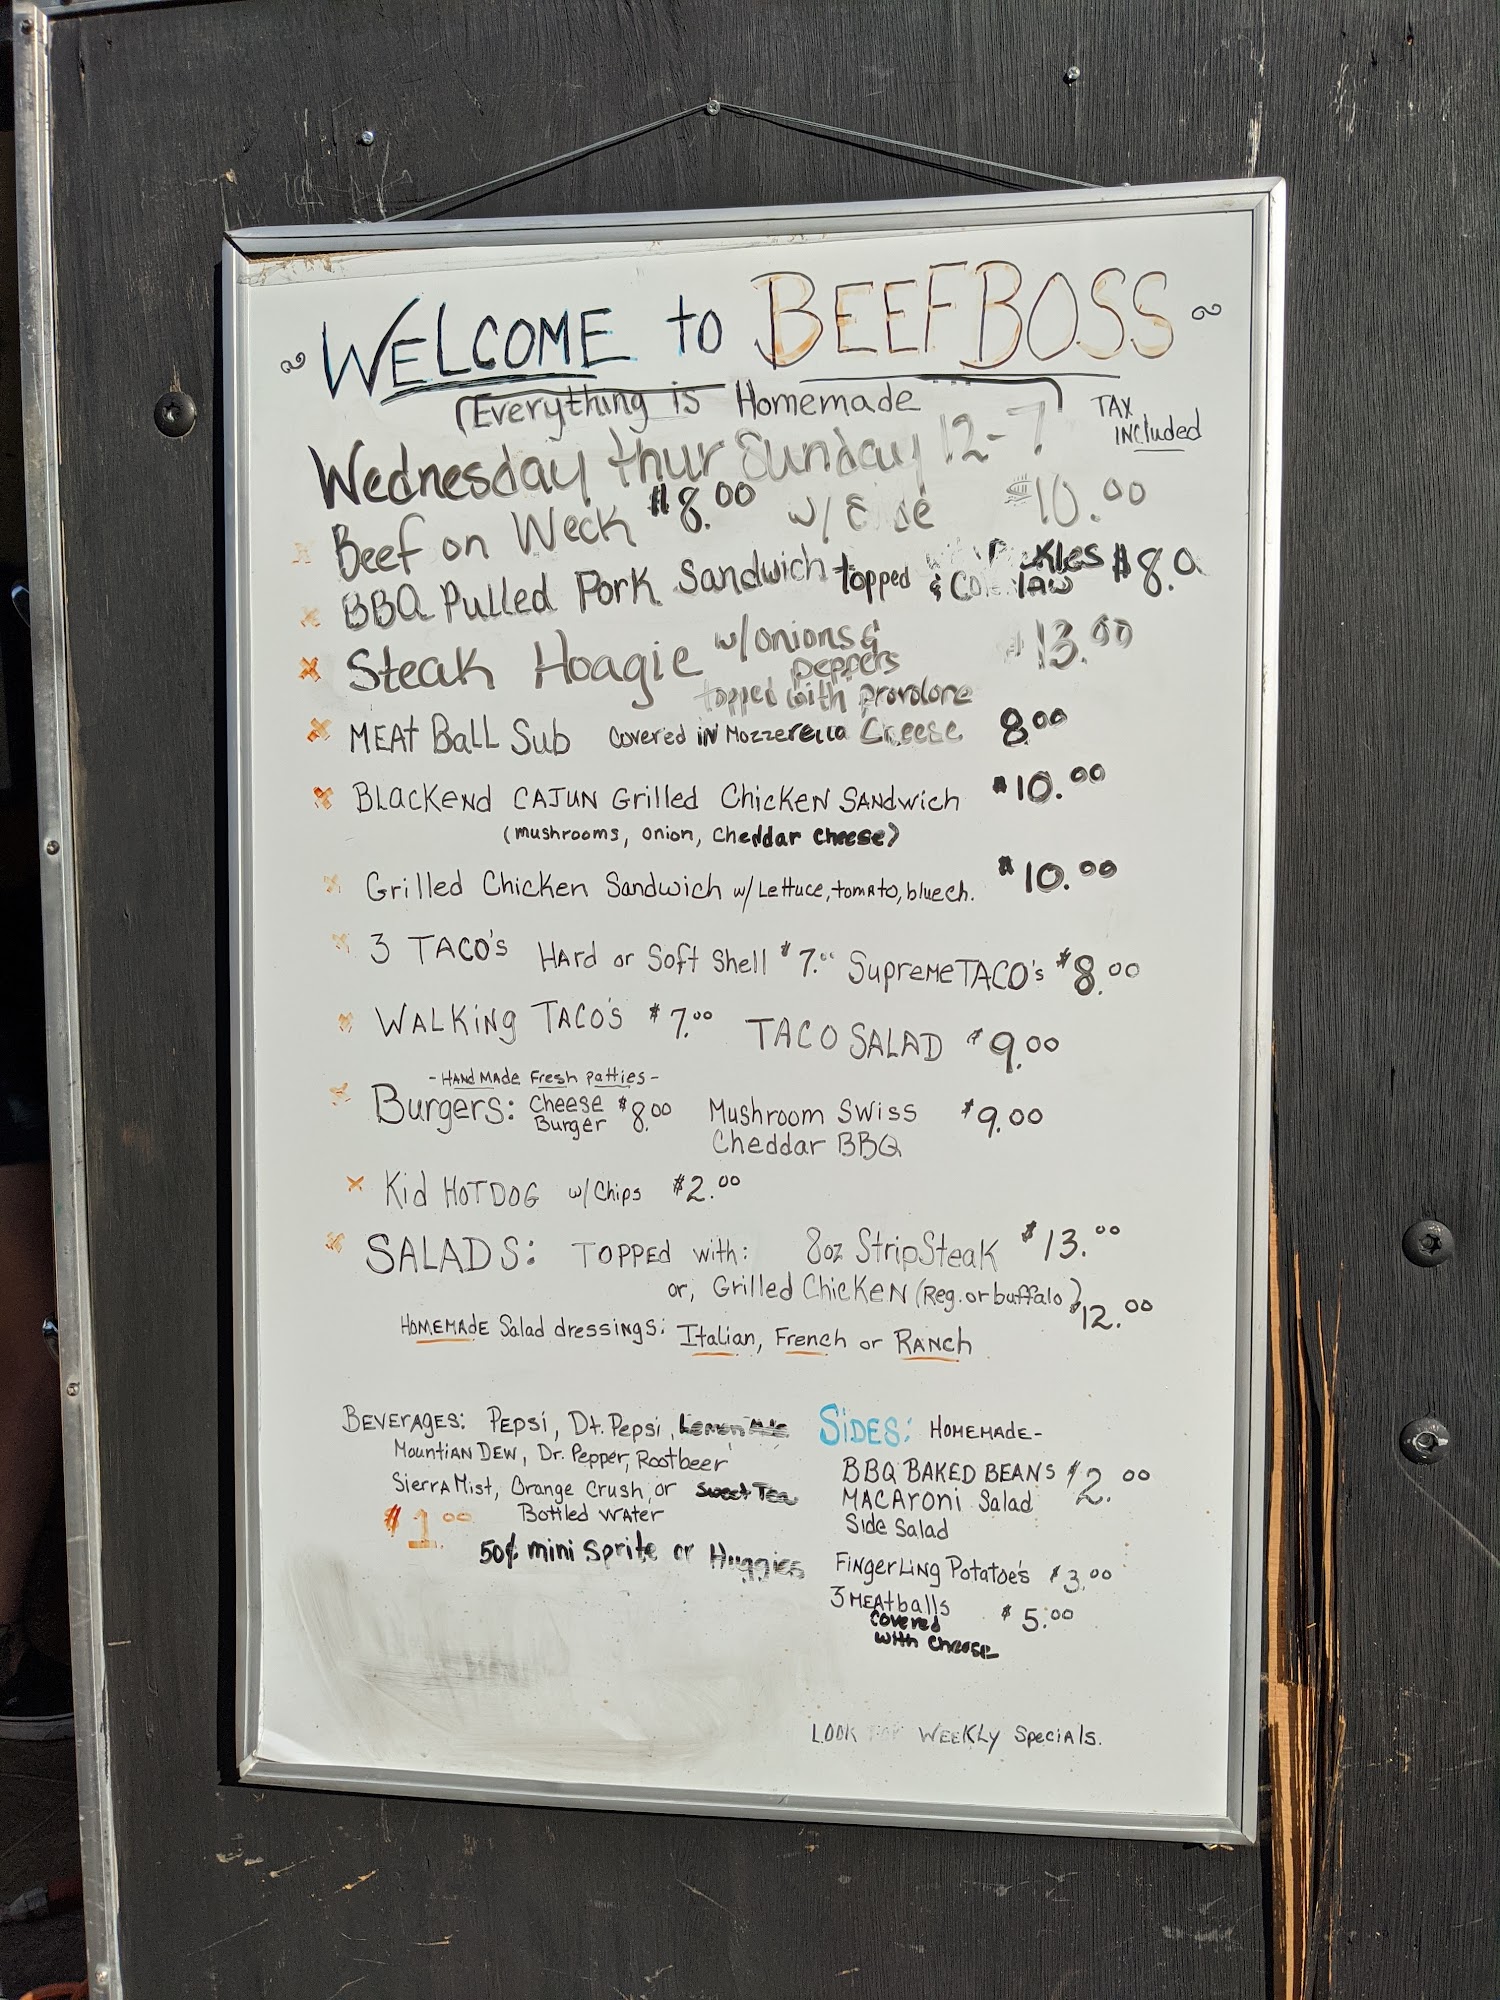 WELCOME to BEEFBOSS
(Everything is Homemade)
TAX INCluded
Wednesday thur Sunday 12-7
Beef on Weck $8.00 w/ $10.00
BBQ Pulled Pork Sandwich topped $8.0
& Coleslaw
Steak Hoagie w/onions & peppers $13.00
topped with provolone
MEAt Ball Sub Covered iN Mozzerella Cheese 8.00
BLACKeNd CAJUN Grilled Chicken SANdwich $10.00
(mushrooms, onion, Cheddar Cheese)
Grilled Chicken Sandwich w/ Lettuce, tomato, blue ch. $10.00
3 TACO's HArd or Soft Shell $7.00 SupremeTACO's $8.00
WALKiNg TACO's $7.00 TACO SALAD $9.00
- HANdMAde Fresh Patties -
Burgers: Cheese Burger $8.00 Mushroom Swiss $9.00
Cheddar BBQ
Kid HOTDOG w/Chips $2.00
SALADS: TOPPEd with: 8oz StripSteak $13.00
or, Grilled ChickeN (Reg. or buffalo) $12.00
HOMEMADE Salad dressings: Italian, French or RANch
BEVERAGES: PEPSi, Dt. Pepsi,
MouNtiAN DEW, Dr. Pepper, Rootbeer
SierrA Mist, Orange Crush, or Sweet Tea
Bottled WAter
$1.00
50¢ mini Sprite or Huggies
SiDES: HOMEMADE-
BBQ BAKED BEANS $2.00
MACAroni Salad
Side Salad
FiNgerLiNg Potatoe's $3.00
3 MEAtballs $5.00
Covered
with Cheese
LOOK FOR WEEKLy SpeciAls.